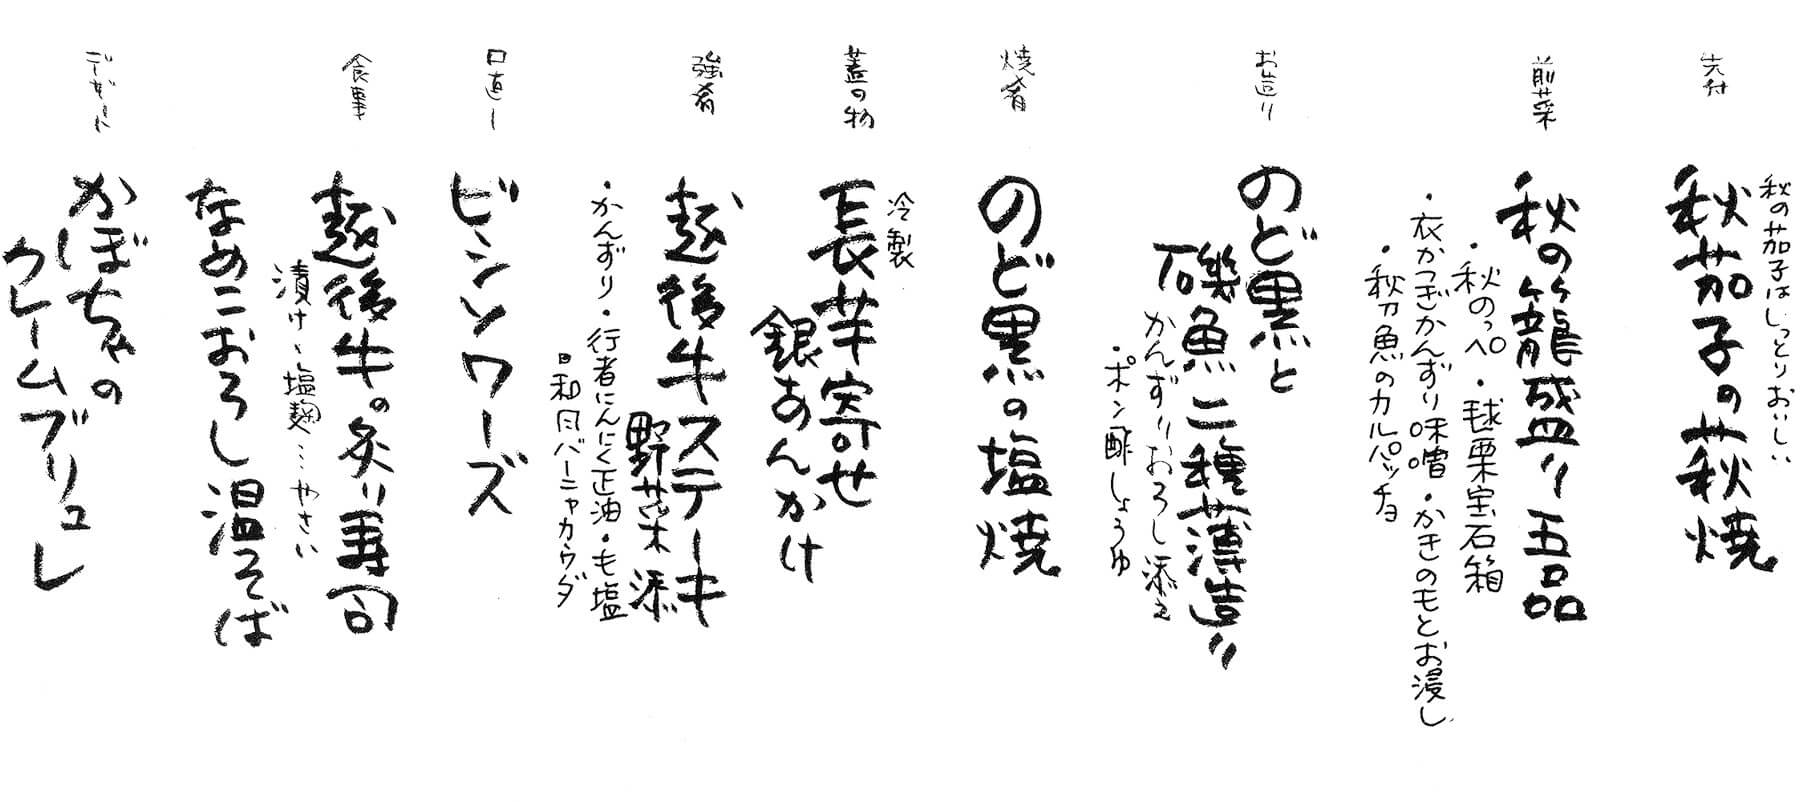 先付
秋の茄子はしっとりおいしい
秋茄子の萩焼
前菜
秋の籠盛り五品
・秋のっぺ・毬栗宝石箱
・衣かつぎかんずり味噌・かきのもとお浸し
・秋刀魚のカルパッチョ
お造り
のど黒と
磯魚二種薄造り
かんずりおろし添え
・ポン酢しょうゆ
焼肴
のど黒の塩焼
蓋の物
冷製
長芋寄せ
銀あんかけ
強肴
越後牛ステーキ
野菜添
・かんずり・行者にんにく正油・も塩
・和風バーニャカウダ
口直し
ビンソワーズ
食事
越後牛の炙り寿司
漬け、塩麹…やさい
なめこおろし温そば
デザート
かぼちゃの
クレームブリュレ